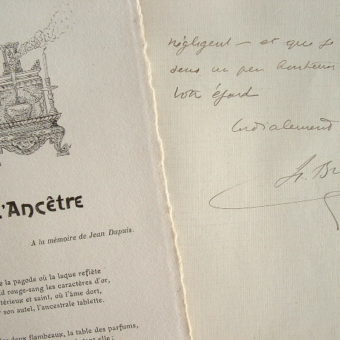 L'Ancêtre
A la mémoire de Jean Dupuis.
la pagode où la laque reflète
d rouge-sang les caractères d'or,
térieux et saint, où l'âme dort,
son autel, l'ancestrale tablette.
deux flambeaux, la table des parfums,
elle ;
négligent — et que je
sens un peu honteux
votre égard
Cordialement